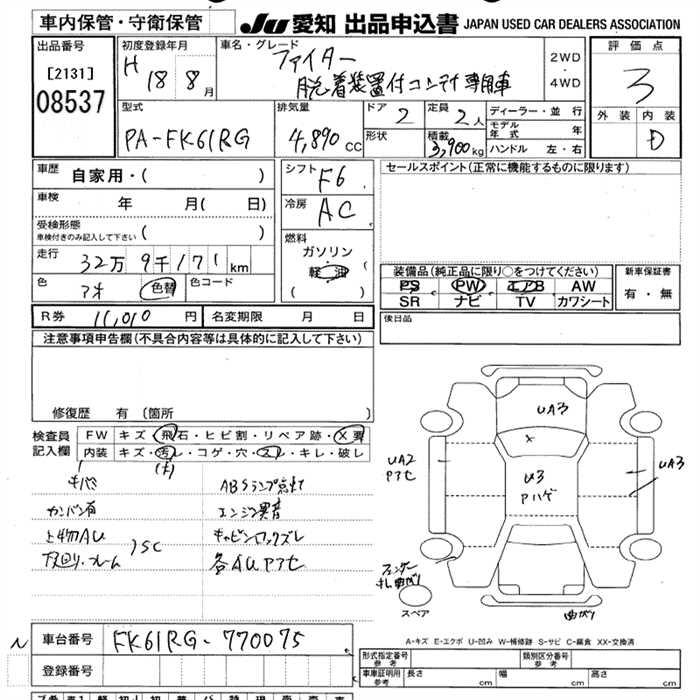 車内保管・守衛保管
JU 愛知 出品申込書 JAPAN USED CAR DEALERS ASSOCIATION
出品番号
[2131]
08537
初度登録年月
H 18 8月
車名・グレード
ファイター
脱着装置付コンテナ専用車
2WD
・
4WD
評価点
3
外装 内装
D
型式
PA-FK61RG
排気量
4,890 cc
ドア
2
定員
2人
形状
積載
3,900kg
ディーラー・並行
モデル年式 年
ハンドル 左・右
車歴
自家用・( )
車検
年 月( 日)
受検形態
車検付きのみ記入して下さい ( )
走行
32万 9千171km
色
アオ
色替
色コード
シフト
F6
冷房
AC
燃料
ガソリン
軽油
( )
セールスポイント(正常に機能するものに限ります)
装備品(純正品に限り○をつけてください)
PS PW エアB AW
SR ナビ TV カワシート
新車保証書
有・無
R券 11,010 円
名変期限 月 日
後日品
注意事項申告欄(不具合内容等は具体的に記入して下さい)
修復歴 有 (箇所 )
検査員
記入欄
FW キズ・飛石・ヒビ割・リペア跡・X要
内装 キズ・汚レ・コゲ・穴・スレ・キレ・破レ
(大)
キバミ
カンバン有
上物AU
下回り・フレーム
SC
ABSランプ点灯
エンジン異音
キャビンロックズレ
各AUアセ
UA3
X
U3
Pハゲ
UA2
Pアセ
UA3
フェンダー
ステ曲がり
スペア
曲がり
A-キズ E-エクボ U-凹み W-補修跡 S-サビ C-腐食 XX-交換済
N
車台番号 FK61RG-770075
登録番号
形式指定番号
参考
類別区分番号
参考
車庫証明用
参考
長さ cm
幅 cm
高さ cm